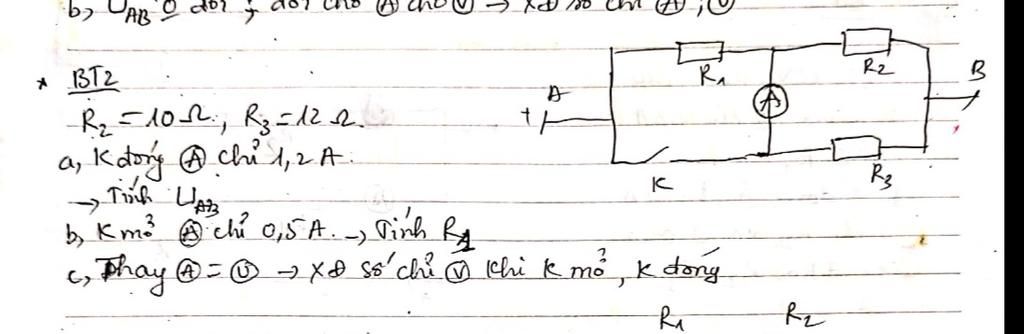 b, U_AB 0 đổi ; đổi chỗ Ⓐ cho Ⓥ → XĐ số chỉ Ⓐ, Ⓥ
* BT2
R₂ = 10 Ω, R₃ = 12 Ω.
a, K đóng Ⓐ chỉ 1,2 A.
→ Tính U_AB
b, K mở Ⓐ chỉ 0,5 A. → Tính R₁
c, Thay Ⓐ = Ⓥ → XĐ số chỉ Ⓥ khi K mở, K đóng
R₁ R₂
+ A B
A
K R₃
R₁ R₂